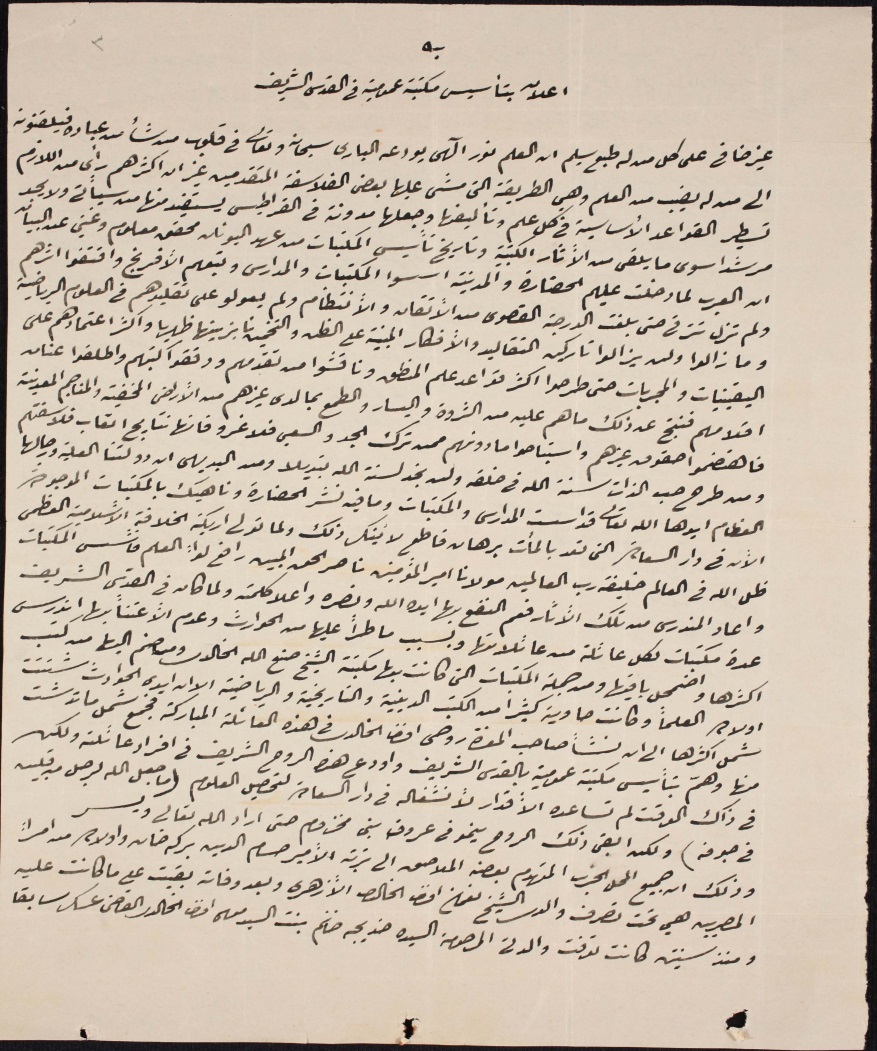 به
اعلان بتأسيس مكتبة عمومية في القدس الشريف
غير خاف على كل من له طبع سليم ان العلم نور الهي يودعه الباري سبحانه وتعالى في قلوب من شاء من عباده فيلقنونه
الى من له نصيب من العلم وهي الطريقة التي مشى عليها بعض الفلاسفة المتقدمين غير ان اكثرهم رأى من اللازم
تسطير القواعد الأساسية في كل علم وتأليفها وجعلها مدونة في القراطيس يستفيد منها من سيأتي ولا يجد
مرشدا سوى ما يلقى من الأثار الكتبية وتاريخ تأسيس المكتبات من عهد اليونان محقق معلوم وغني عن البيان
ان العرب لما دخلت عليهم الحضارة والمدنية اسسوا المكتبات والمدارس وتبعهم الأفرنج واقتفوا اثرهم
ولم تزل تترقى حتى بلغت الدرجة القصوى من الأتقان والأنتظام ولم يعولو على تقليدهم في العلوم الرياضية
وما زالوا ولن يزالوا تاركين التقاليد والأفكار المبنية على الظن والتخمين نابزينها ظهريا واكثر اعتمادهم على
اليقينيات والمجربات حتى طرحوا اكثر قواعد علم المنطق وناقشوا من تقدمهم ودققوا كتبهم واطلقوا عنان
اقلامهم فنتج عن ذلك ما هم عليه من الثروة واليسار والطمع بما لدى غيرهم من الأراضي الخصبة والمناجم المعدنية
فاهتضموا حقوق غيرهم واستباحوا ما دونهم ممن ترك الجد والسعي فلا غرو فانها نتايج اتعاب فلاسفتهم
ومن طرح حب الذات سنة الله في خلقه ولن تجد لسنة الله تبديلا ومن البديهي ان دولتنا العلية ورجالها
العظام ايدها الله تعالى قد اسست المدارس والمكتبات وما فيه نشر الحضارة وناهيك بالمكتبات الموجودة
الأن في دار السعادة التي تعد بالمأت برهان قاطع لا ينكر ذلك ولما تولى اريكة الخلافة الاسلامية العظمى
ظل الله في العالم خليفة رب العالمين مولانا امير المؤمنين ناصر الحق المبين رافع لواء العلم فأسس المكتبات
واعاد المندرس من تلك الأثار فعم النفع بها ايده الله ونصره واعلا كلمته ولما كان في القدس الشريف
عدة مكتبات لكل عائلة من عائلاتها وبسبب ما طرأ عليها من الحوادث وعدم الأعتناء بها اندرس
اكثرها واضمحل باقيها ومن جملة المكتبات التي كانت بها مكتبة الشيخ صنع الله الخالدي ومن ضم اليها من كتب
اولاده العلماء وكانت حاوية كثيرا من الكتب الدينية والتاريخية والرياضية الا ان ايدي الحوادث شتتت
شمل اكثرها الى ان نشأ صاحب المعزة روحي افندي الخالدي في هذه العائلة المباركة فجمع شمل ما تشتت
منها وهم بتأسيس مكتبة عمومية بالقدس الشريف واودع هذه الروح الشريفة في افراد عائلته ولكن
في ذاك الوقت لم تساعده الأقدار لأنشغاله في دار السعادة لتحصيل العلوم (ما جعل الله لرجل من قلبين
في جوفه) ولكن ابقى ذلك الروح ينمو في عروق بني مخزوم حتى اراد الله تعالى ويسر
وذلك ان جميع المحل الخرب المتهدم بعضه الملاصق الى تربة الأمير حسام الدين بركه خان واولاده من امراء
المصريين هي تحت تصرف والدي الشيخ نعمان افندي الخالدي الأزهري وبعد وفاته بقيت على ما كانت عليه
ومنذ سنتين كانت توفت والدتي المرحومة السيده خديجه خانم بنت السيد موسى افندي الخالدي القاضي عسكر سابقا